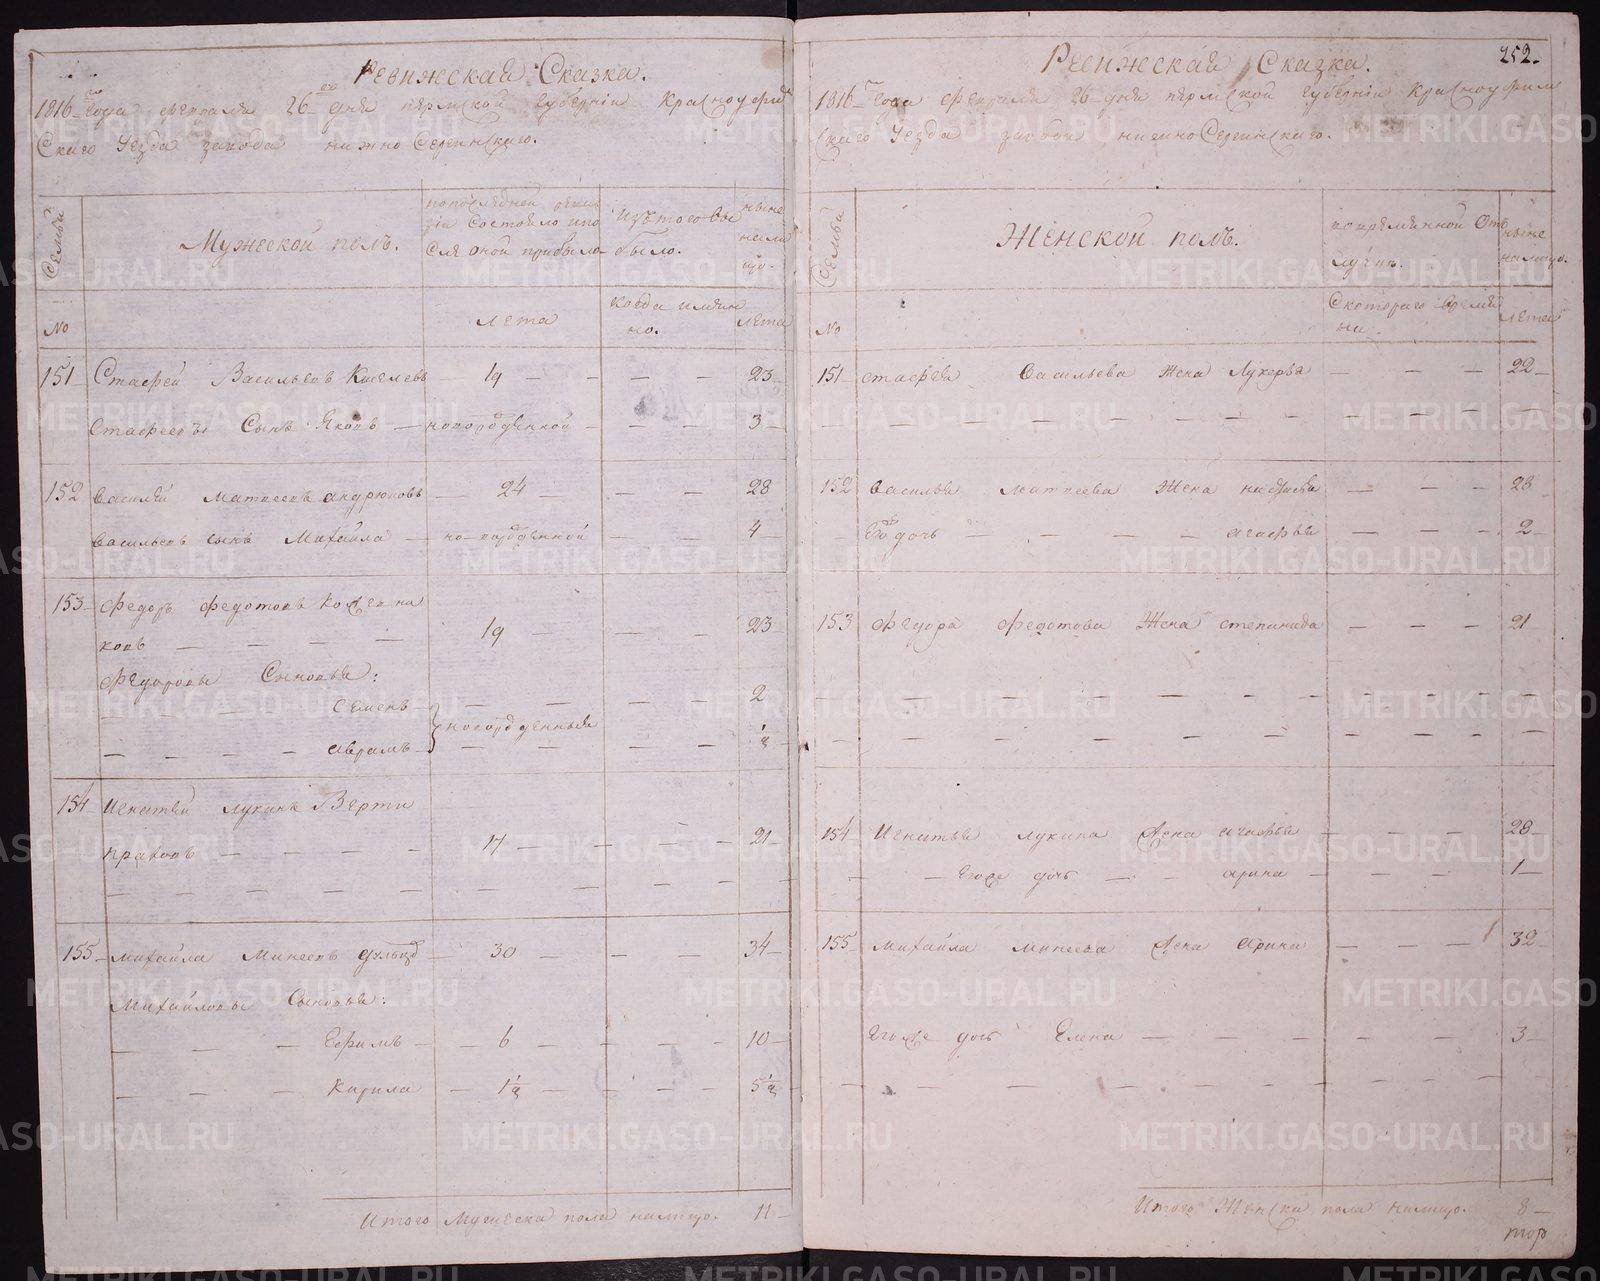 Ревижская Сказка.
1816 года февраля 26 дня пермской губернии Красноуфим
Скаго Уезда завода нижно Сергинскаго.
Семьи
Мужеской полъ.
по последней реви
зіи состояло и по
сле оной прибыло
изъ того вы
было.
ныне
нали
цо.
No
лета
когда имян
но.
лета
151 Стафей Васильевъ Киселевъ 19 23
Стафеевъ Сынъ Яковъ новорожденной 3
152 Василей Матвеевъ андрюковъ 24 28
васильевъ сынъ Михайла новорожденной 4
153 Федоръ Федотовъ Кожевни
ковъ 19 23
Федоровы Сыновья:
Семенъ 2
новорожденныя
аврамъ ½
154 Игнатей лукинъ Верти
праховъ 17 21
155 Михайла Минеевъ 30 34
Михайловы Сыновья:
Ефимъ 6 10
Кирила 1½ 5½
Итого Мужеска пола налицо. 11
252.
Ревижская Сказка.
1816 года Февраля 26 дня пермской губерніи Красноуфим
скаго Уезда завода нижно Сергинскаго.
Семьи
Женской полъ.
во временной от
лучке.
ныне
налицо.
No
Скотораго време
ни.
лета
151 стафея Васильева жена Лукерья 22
152 Василья матвеева жена настасья 28
Его дочь агафья 2
153 Федора Федотова Жена степанида 21
154 Игнатья лукина жена агафья 28
Егоже дочь арина 1
155 михайла минеева жена арина 32
Егоже дочь Елена 3
Итого Женска пола налицо. 8
METRIKI.GASO-URAL.RU